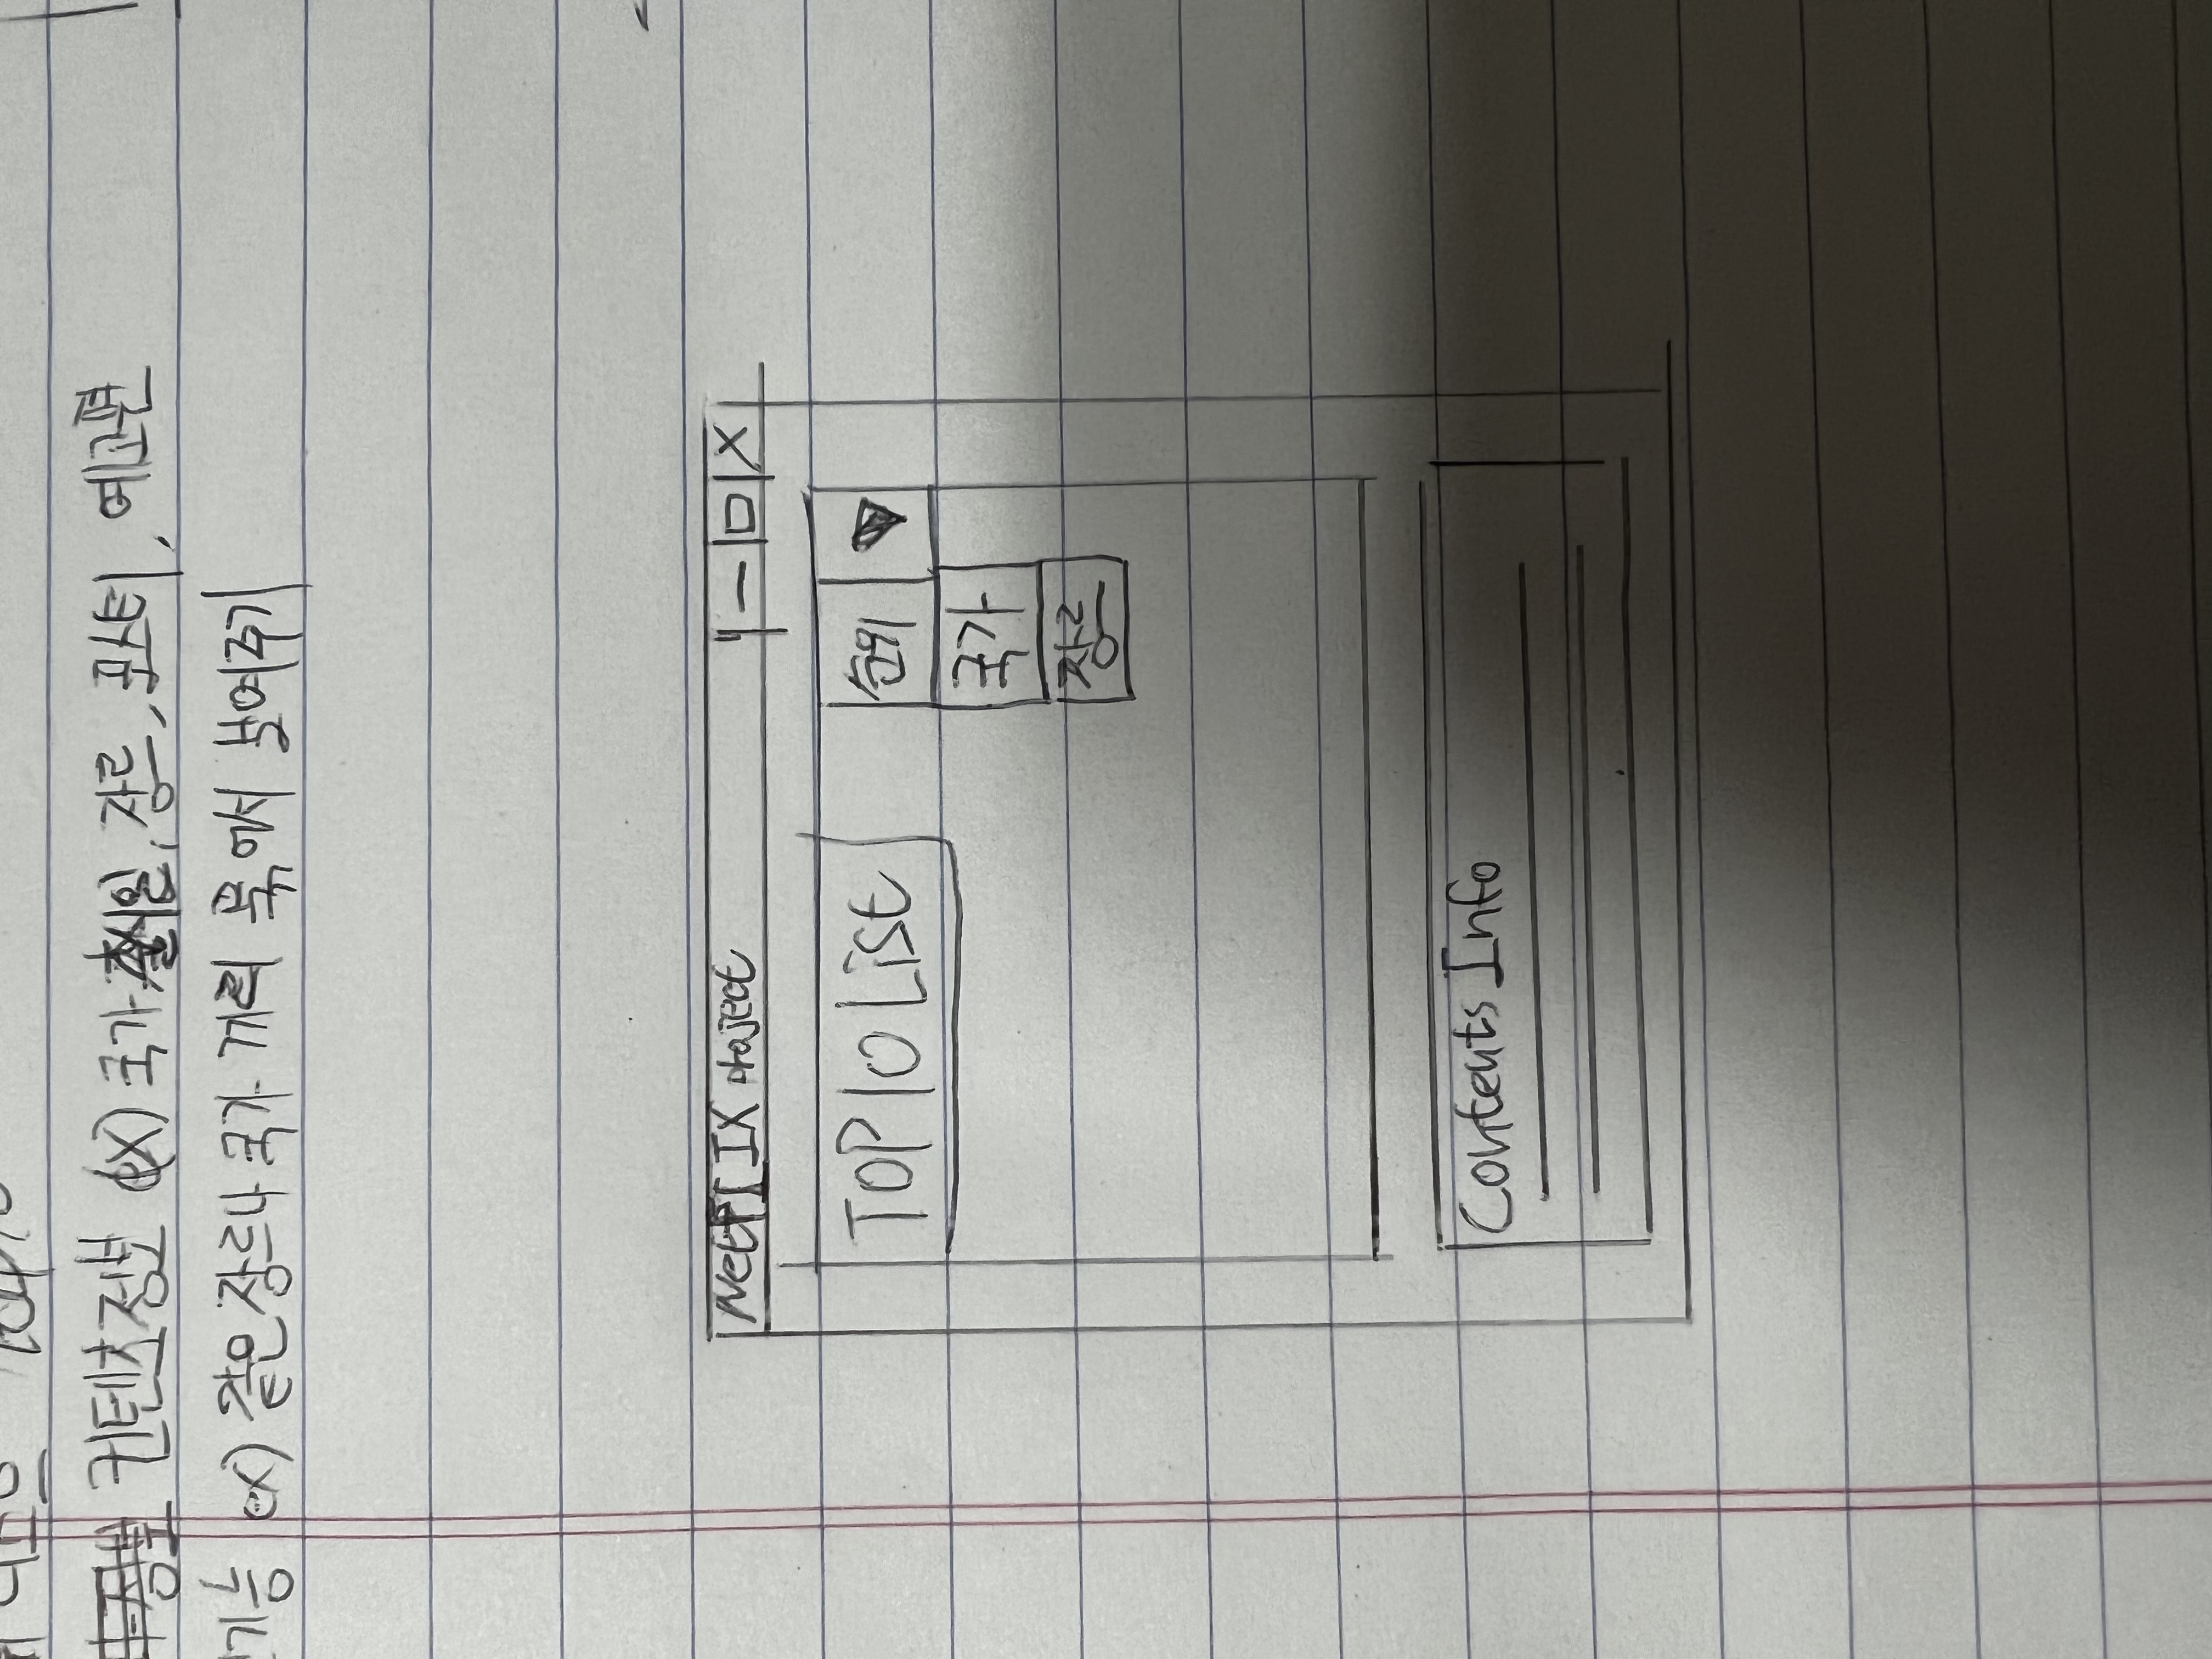 컨텐츠정보 ex) 국가 출시일, 장르, 포스터, 예고편
기능 ex) 같은 장르나 국가 끼리 묶어서 보여주기
NetflIX project — □ X
TOP 10 List
순위 ▼
국가
장르
Contents Info